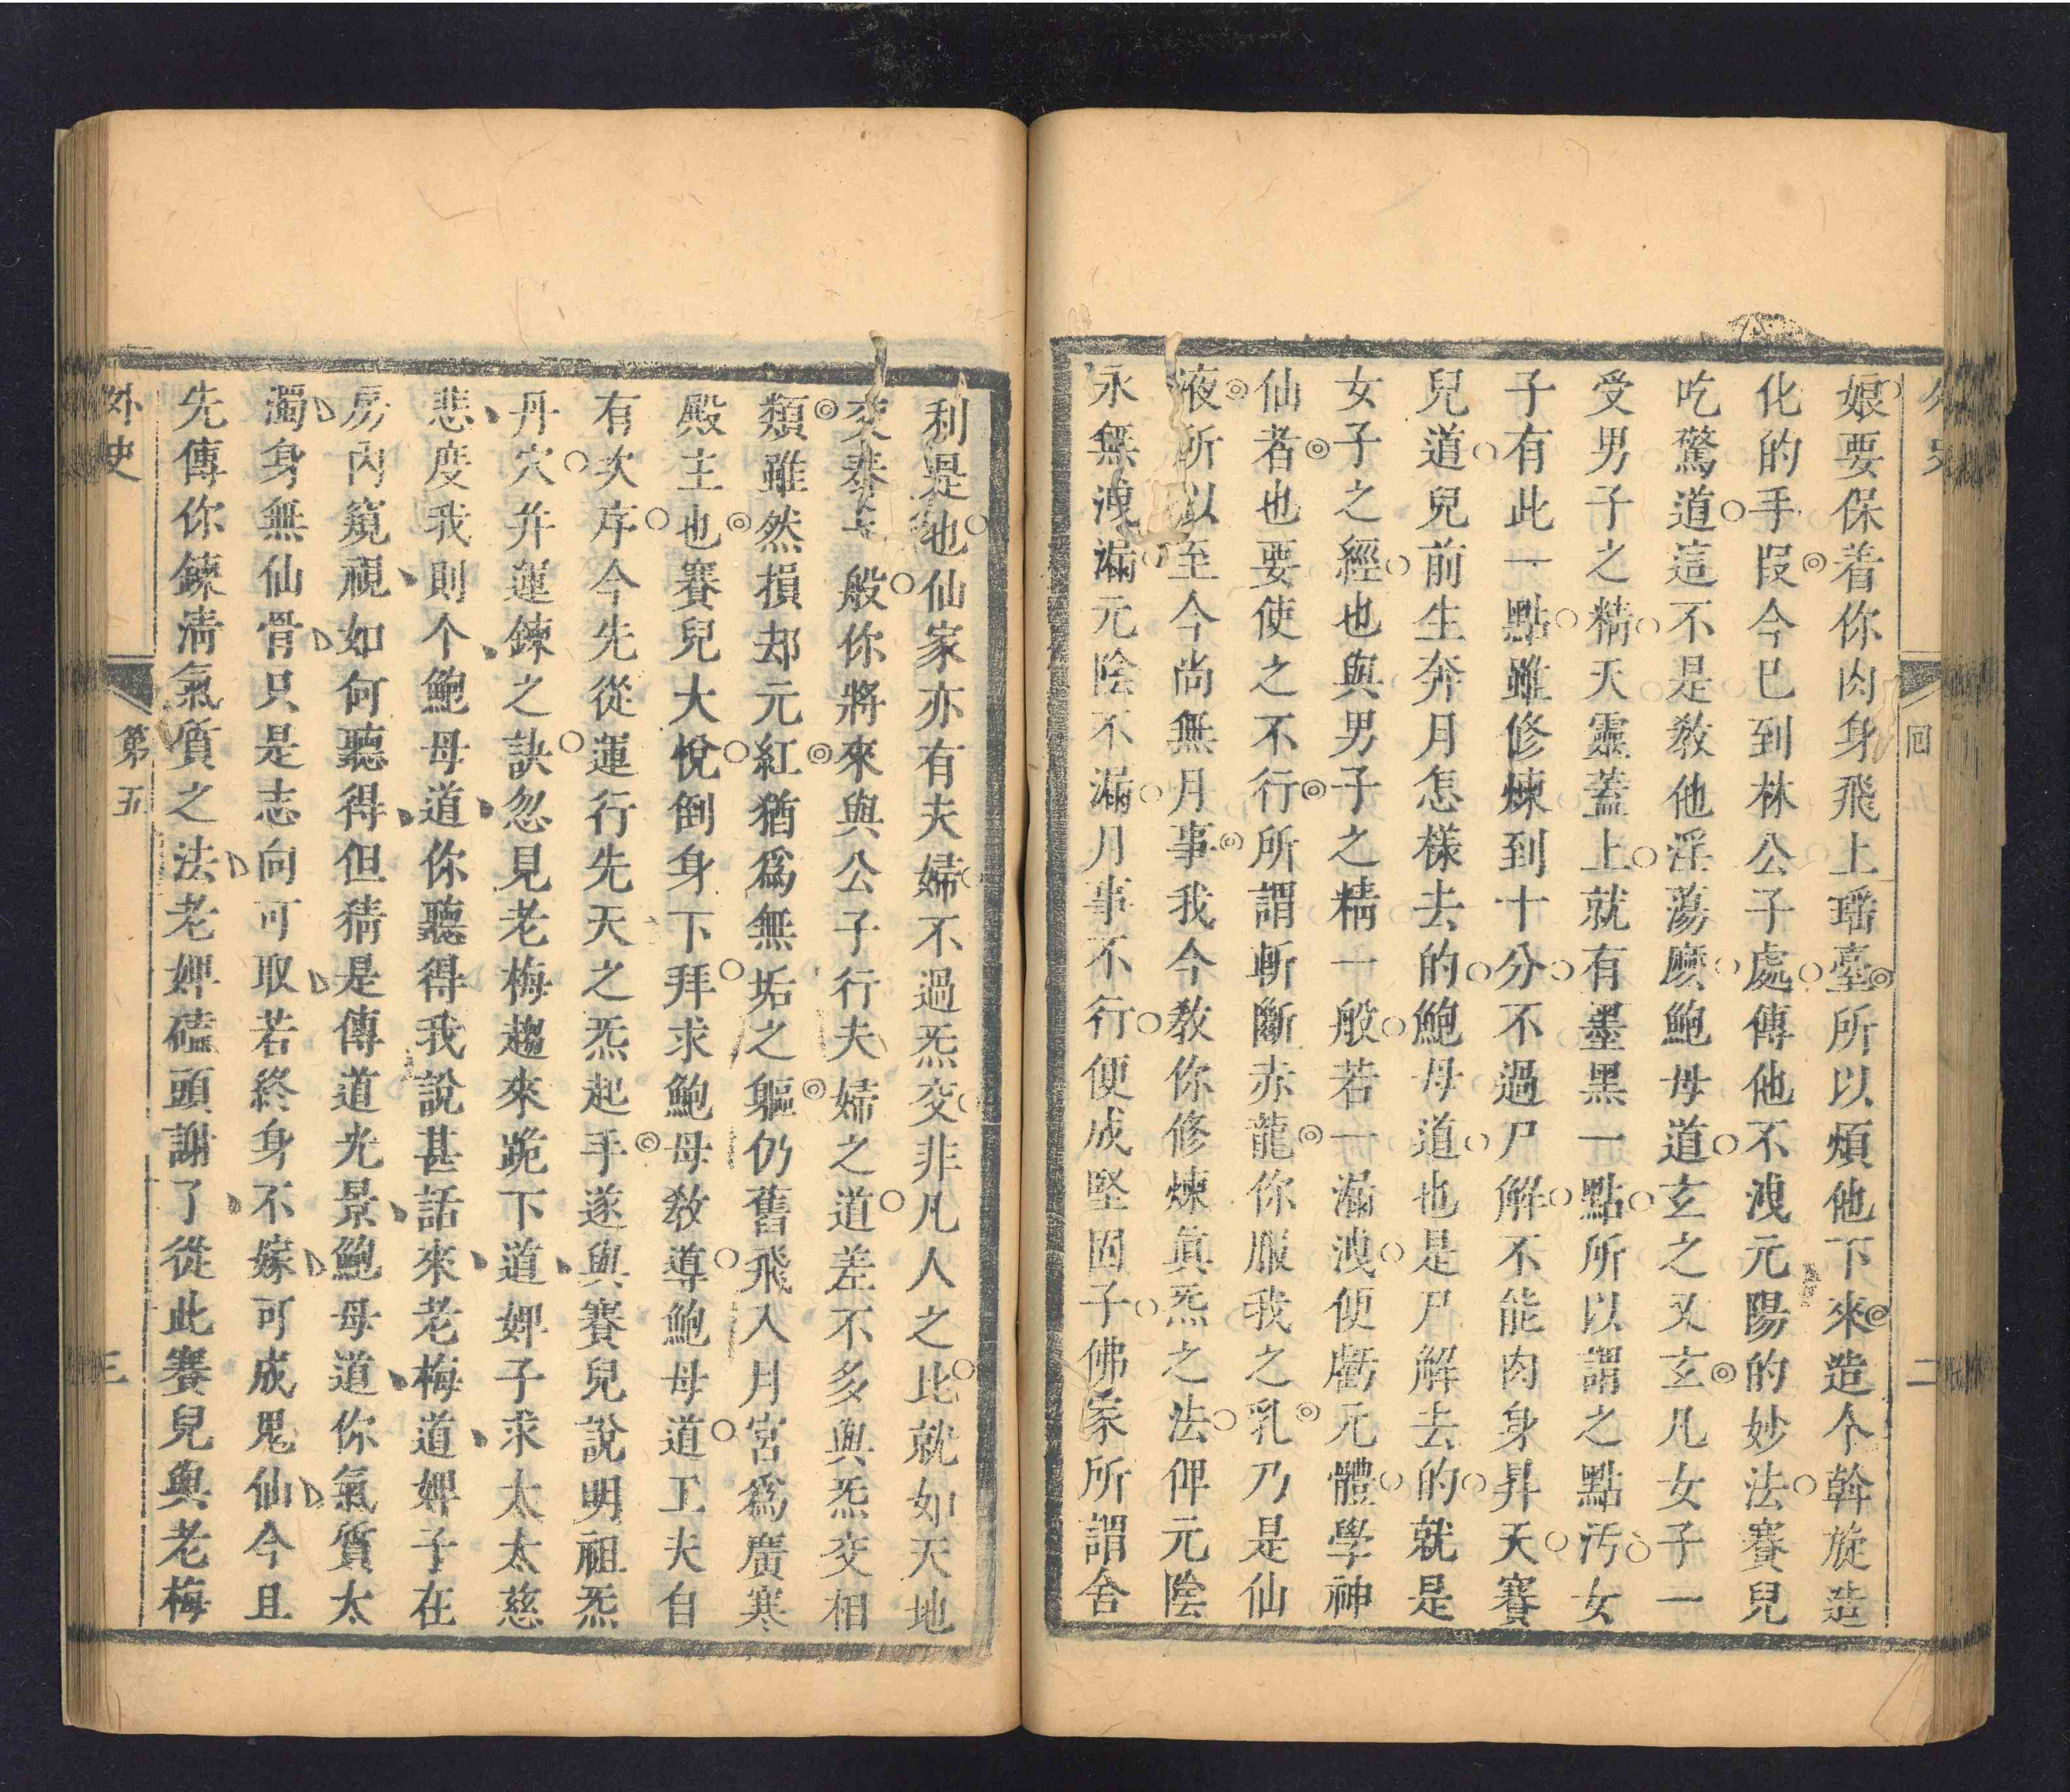 外史
回
二
娘要保着你肉身飛上瑤臺所以煩他下來造个斡旋造
化的手叚今巳到林公子處傳他不洩元陽的妙法賽兒
吃驚道這不是教他淫蕩麽鮑母道玄之又玄凡女子一
受男子之精天靈蓋上就有墨黑一點所以謂之點汚女
子有此一點雖修煉到十分不過尸解不能肉身昇天賽
兒道兒前生奔月怎樣去的鮑母道也是尸解去的就是
女子之經也與男子之精一般若一漏洩便虧元體學神
仙者也要使之不行所謂斬斷赤龍你服我之乳乃是仙
液所以至今尚無月事我今教你修煉眞炁之法俾元陰
永無洩漏元陰不漏月事不行便成堅固子佛家所謂舍
利是也仙家亦有夫婦不過炁交非凡人之比就如天地
交泰一般你將來與公子行夫婦之道差不多與炁交相
類雖然損却元紅猶爲無垢之軀仍舊飛入月宮爲廣寒
殿主也賽兒大悅倒身下拜求鮑母教導鮑母道工夫自
有次序今先從運行先天之炁起手遂與賽兒說明祖炁
丹穴并運鍊之訣忽見老梅趨來跪下道婢子求太太慈
悲度我則个鮑母道你聽得我說甚話來老梅道婢子在
房內窺視如何聽得但猜是傳道光景鮑母道你氣質太
濁身無仙骨只是志向可取若終身不嫁可成鬼仙今且
先傳你鍊清氣質之法老婢磕頭謝了從此賽兒與老梅
外史
第五
三